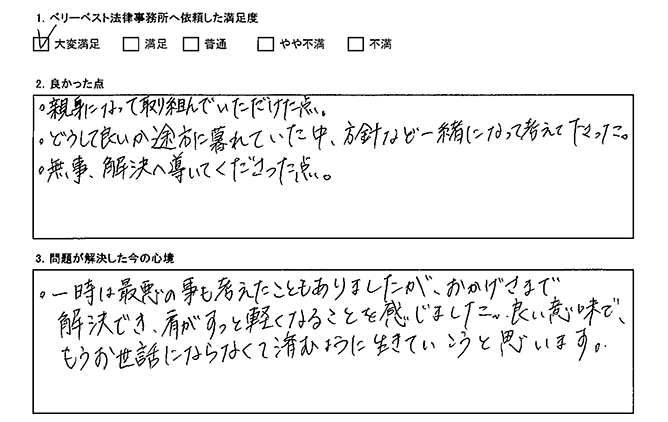 1. ベリーベスト法律事務所へ依頼した満足度
☑ 大変満足 □ 満足 □ 普通 □ やや不満 □ 不満
2. 良かった点
○親身になって取り組んでいただけた点。
○どうして良いか途方に暮れていた中、方針など一緒になって考えて下さった。
○無事、解決へ導いてくださった点。
3. 問題が解決した今の心境
○一時は最悪の事も考えたこともありましたが、おかげさまで
解決でき、肩がすっと軽くなることを感じました。良い意味で、
もうお世話にならなくて済むように生きていこうと思います。